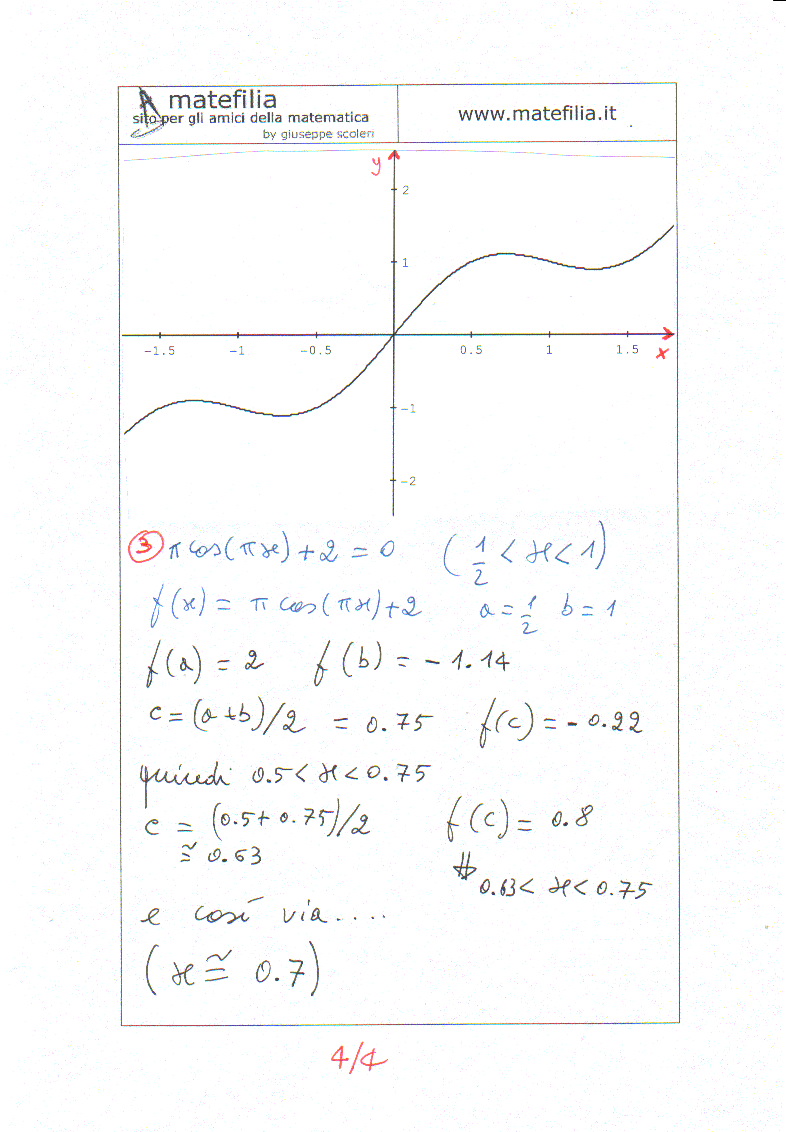 matefilia
sito per gli amici della matematica
by giuseppe scoleri
www.matefilia.it
y
2
1
-1.5 -1 -0.5 0.5 1 1.5 x
-1
-2
3 π cos(πx)+2=0 (1/2 < x < 1)
f(x) = π cos(πx)+2 a=1/2 b=1
f(a) = 2 f(b) = -1.14
c=(a+b)/2 = 0.75 f(c)=-0.22
quindi 0.5< x < 0.75
c = (0.5+0.75)/2 f(c)= 0.8
≅ 0.63
0.63< x < 0.75
e così via....
(x ≅ 0.7)
4/4